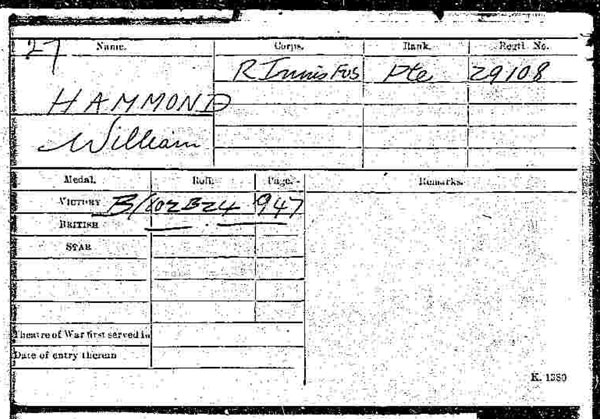 27
Name. Corps. Rank. Regtl. No.
R Innis Fus Pte 29108
HAMMOND
William
Medal. Roll. Page. Remarks.
VICTORY B/102B24 947
BRITISH — " — " —
STAR
Theatre of War first served in
Date of entry therein
K. 1380